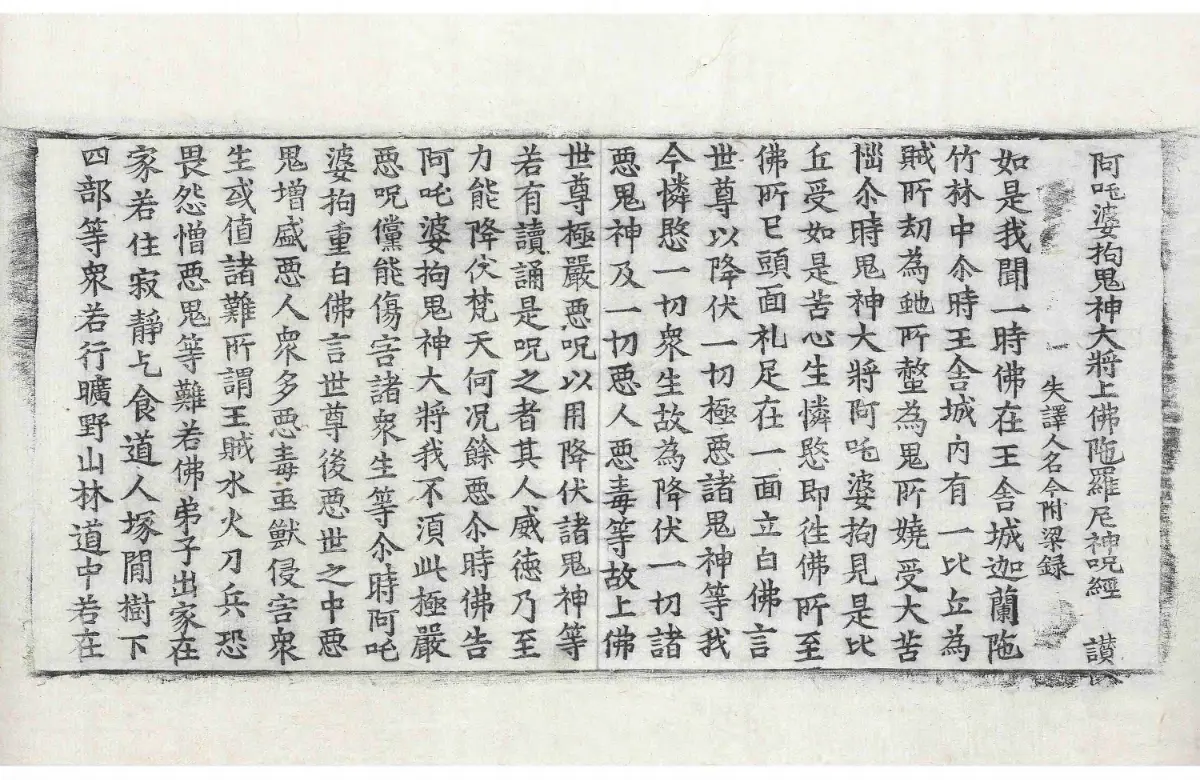 阿吒婆拘鬼神大將上佛陁羅尼神呪經 讃
失譯人名今附梁録
如是我聞一時佛在王舎城迦蘭陁
竹林中尒時王舎城内有一比丘為
賊所刧為虵所螫為鬼所嬈受大苦
惱尒時鬼神大將阿吒婆拘見是比
丘受如是苦心生憐愍即徃佛所至
佛所已頭面札足在一面立白佛言
世尊以降伏一切極惡諸鬼神等我
今憐愍一切衆生故為降伏一切諸
惡鬼神及一切惡人惡毒等故上佛
世尊極嚴惡呪以用降伏諸鬼神等
若有讀誦是呪之者其人威德乃至
力能降伏梵天何況餘惡尒時佛告
阿吒婆拘鬼神大將我不湏此極嚴
惡呪儻能傷害諸衆生等尒時阿吒
婆拘重白佛言世尊後惡世之中惡
鬼增盛惡人衆多惡毒䖝獸侵害衆
生或值諸難所謂王賊水火刀兵恐
畏怨憎惡鬼等難若佛弟子出家在
家若住寂靜乞食道人塚間樹下
四部等衆若行曠野山林道中若在